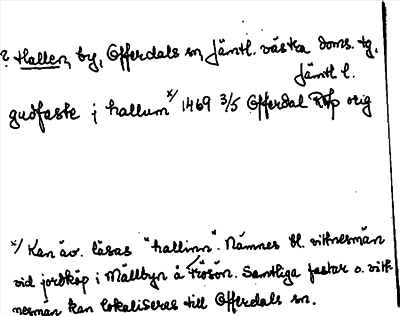 ? Hallen, by, Offerdals sn, Jämtl. västra doms. tg,
Jämtl l.
gudfaste i hallum x/ 1469 3/5 Offerdal orig
x/ Kan äv. läsas "hallinn". Nämnes bl. vittnesmän
vid jordköp i Mällbyn å Frösön. Samtliga fastar o. vitt-
nesmän kan lokaliseras till Offerdals sn.